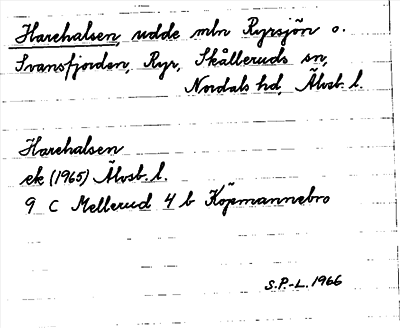 Harehalsen, udde mln Ryrsjön o.
Svansfjorden, Ryr, Skålleruds sn,
Nordals hd, Älvsb. l.
Harehalsen
ek (1965) Älvsb. l.
9 C Mellerud 4 b Köpmannebro
S.P.-L. 1966